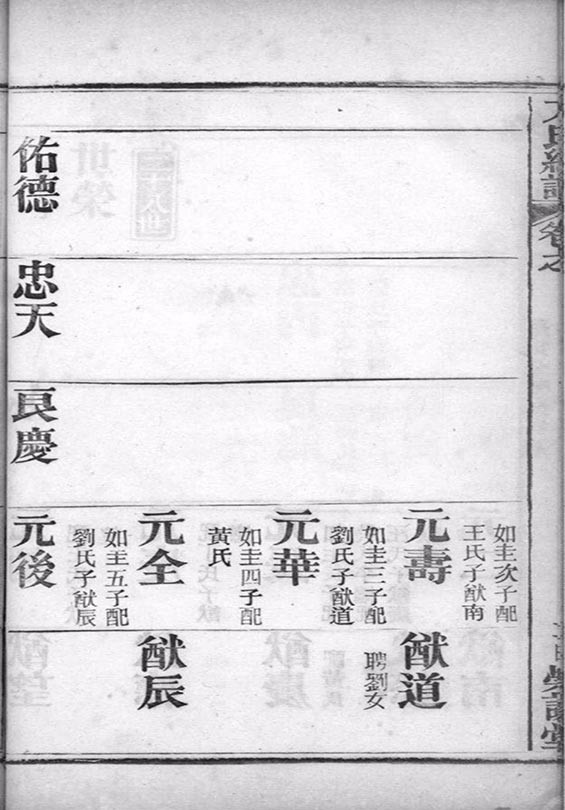 卷之
佑德
忠天
良慶
如圭次子配
王氏子猷南
元壽
如圭三子配
劉氏子猷道
元華
如圭四子配
黃氏
元全
如圭五子配
劉氏子猷辰
元後
猷道
聘劉女
猷辰